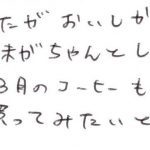 たが おいしか
味がちゃんとし
3月のコーヒーも
買ってみたいと